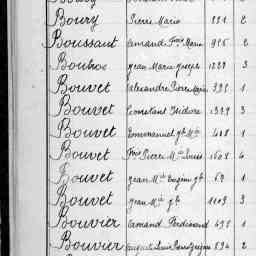 Boury Pierre Marie 221 2
Boussant Armand Fois Marie 926 2
Boutros Jean Marie Joseph 1229 3
Bouvet Alexandre Pierre Marie 391 1
Bouvet Constant Isidore 1329 3
Bouvet Emmanuel 408 1
Bouvet Pierre Mie Louis 1608 4
Bouvet Jean Mie Eugène 69 1
Bouvet Jean Mie 1109 3
Bouvier Armand Ferdinand 491 1
Bouvier Auguste Louis 894 2